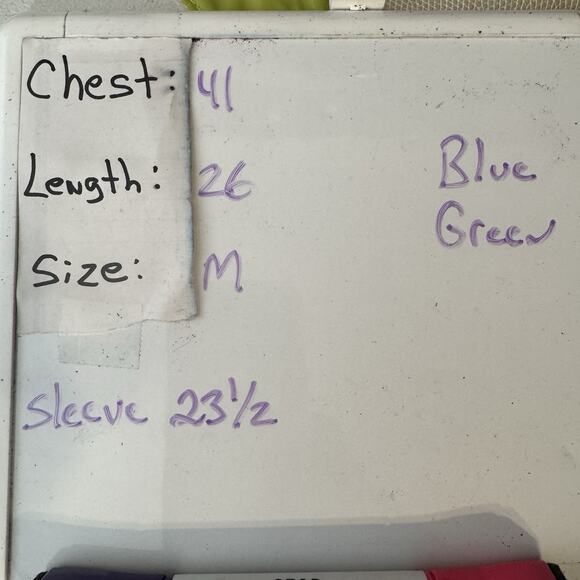 Chest: 41
Length: 26
Size: M
Blue
Green
Sleeve 23 1/2